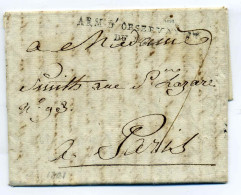 ARM. D'OBSERV.
DU
a Madame
Smith rue St Lazare
No 98.
a Paris